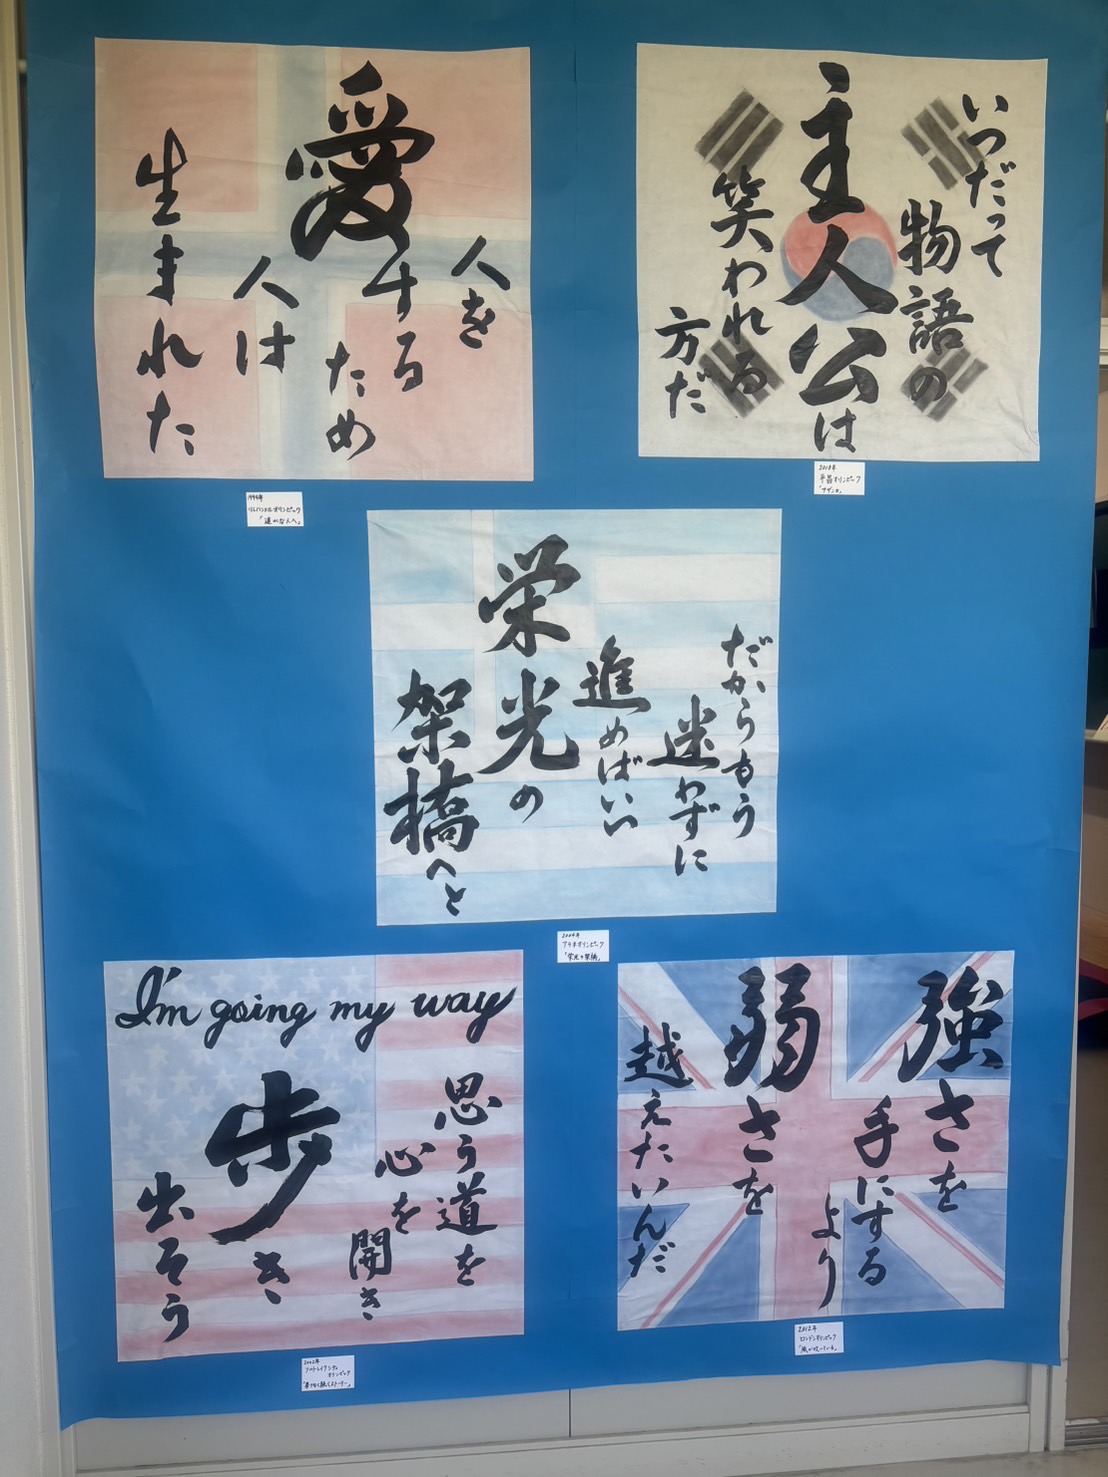 人を
愛する
ため
人は
生まれた
1994年
リレハンメルオリンピック
「遥かな人へ」
いつだって
物語の
主人公は
笑われる
方だ
2018年
平昌オリンピック
「サザンカ」
だからもう
迷わずに
進めばいい
栄光の
架橋へと
2004年
アテネオリンピック
「栄光の架橋」
I'm going my way
思う道を
心を
開き
歩き
出そう
2002年
ソルトレイクシティ
オリンピック
強さを
手にする
より
弱さを
越えたいんだ
2012年
ロンドンオリンピック
「風が吹いている」